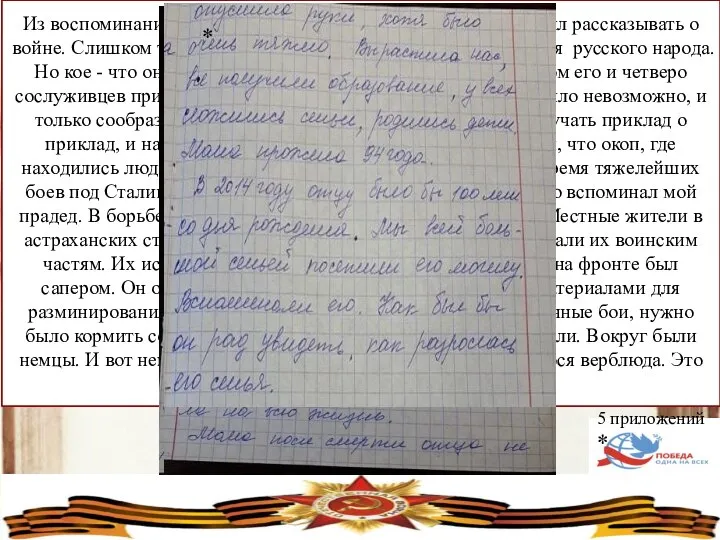 Из воспоминани
л рассказывать о
войне. Слишком
я русского народа.
Но кое - что он
ом его и четверо
сослуживцев при
ло невозможно, и
только сообраз
учать приклад о
приклад, и на
, что окоп, где
находились люд
ремя тяжелейших
боев под Стали
о вспоминал мой
прадед. В борьбе
Местные жители в
астраханских ст
али их воинским
частям. Их ис
на фронте был
сапером. Он о
териалами для
разминировани
нные бои, нужно
было кормить с
ли. Вокруг были
немцы. И вот не
ося верблюда. Это
*
опустила руки, хотя было
очень тяжело. Вырастила нас,
все получили образование, у всех
сложились семьи, родились дети.
Мама прожила 94 года.
В 2014 году отцу было бы 100 лет
со дня рождения. Мы всей боль-
шой семьей посетили его могилу.
Вспоминали его. Как был бы
он рад увидеть, как разрослась
его семья.
ла на всю жизнь.
Мама после смерти отца не
5 приложений
*
ПОБЕДА
ОДНА НА ВСЕХ